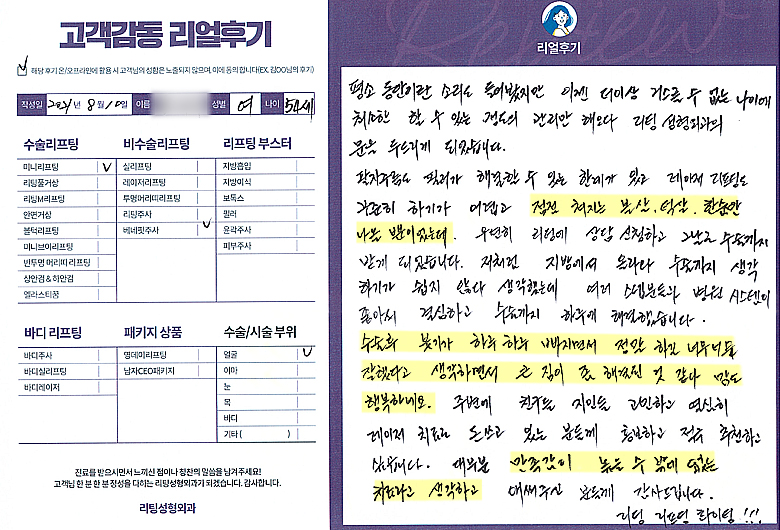 고객감동 리얼후기
해당 후기 온/오프라인에 활용 시 고객님의 성함은 노출되지 않으며, 이에 동의 합니다(EX. 김OO님의 후기)
작성일 2021년 8월 10일 이름 성별 여 나이 54세
수술리프팅 비수술리프팅 리프팅 부스터
미니리프팅 실리프팅 지방흡입
리팅풀거상 레이저리프팅 지방이식
리팅M리프팅 투명머리띠리프팅 보톡스
안면거상 리팅주사 필러
볼턱리프팅 베네핏주사 윤곽주사
미니브이리프팅 피부주사
반투명 머리띠 리프팅
상안검 & 하안검
엘라스티꿈
바디 리프팅 패키지 상품 수술/시술 부위
바디주사 영데이리프팅 얼굴
바디실리프팅 남자CEO패키지 이마
바디레이저 눈
목
바디
기타 ( )
진료를 받으시면서 느끼신 점이나 칭찬의 말씀을 남겨주세요!
고객님 한 분 한 분 정성을 다하는 리팅성형외과가 되겠습니다. 감사합니다.
리팅성형외과
Review
리얼후기
평소 동안이란 소리도 들어봤지만 이젠 더이상 거스를 수 없는 나이에
최소한 할 수 있는 정도의 관리만 해오다 리팅 성형외과의
문을 두드리게 되었습니다.
팔자주름도 필러가 해결할 수 있는 한계가 있고 레이저 리프팅도
꾸준히 하기가 어렵고 점점 쳐지는 볼살, 턱살, 한숨만
나올 뿐이었는데. 우연히 리팅에 상담 신청하고 그날로 수술까지
받게 되었습니다. 저처럼 지방에서 올라와 수술까지 생각
하기가 쉽지 않다 생각했는데 여러 스텝분들과 병원 시스템이
좋아서 결심하고 수술까지 하루에 해결했습니다.
수술후 붓기가 하루 하루 빠지면서 정말 하길 너무너무
잘했다고 생각하면서 큰 짐이 좀 해결된 것 같아 맘도
행복하네요. 주변에 친구들 지인들 고민하고 열심히
레이저 치료로 돈쓰고 있는 분들께 홍보하고 적극 추천하고
싶습니다. 대부분 만족감이 높을 수 밖에 없는
치료라고 생각하고 애써주신 분들께 감사드립니다.
리팅 리프팅 화이팅 !!!